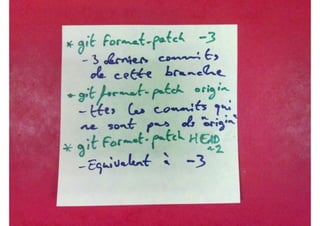 * git format-patch -3
- 3 derniers commits
de cette branche
* git format-patch origin
- ttes les commits qui
ne sont pas ds "origin"
* git format-patch HEAD
~2
- Equivalent à -3